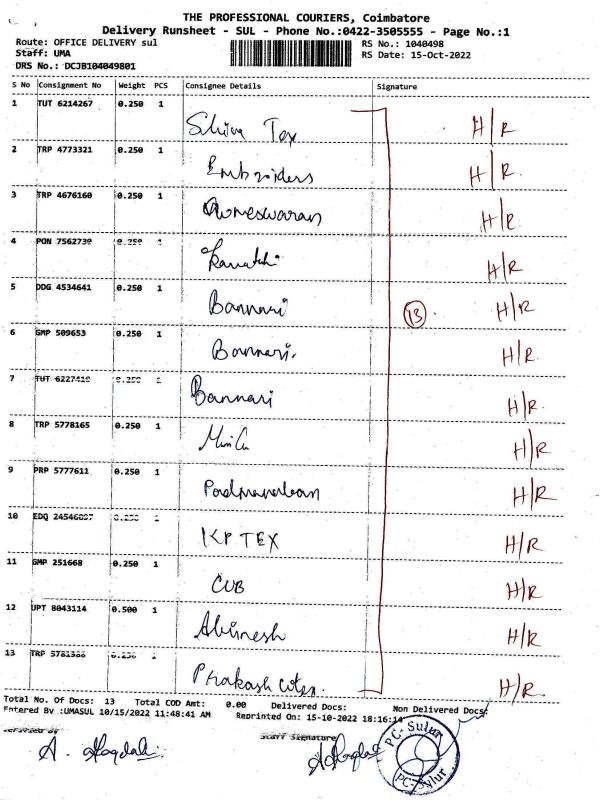 THE PROFESSIONAL COURIERS, Coimbatore
Delivery Runsheet - SUL - Phone No.:0422-3505555 - Page No.:1
Route: OFFICE DELIVERY sul RS No.: 1040498
Staff: UMA RS Date: 15-Oct-2022
DRS No.: DCJB104049801
S No Consignment No Weight PCS Consignee Details Signature
1 TUT 6214267 0.250 1 Shiva Tex H/R
2 TRP 4773321 0.250 1 Embroiders H/R
3 TRP 4676160 0.250 1 H/R
4 PON 7562739 0.250 1 H/R
5 DDG 4534641 0.250 1 Bannari 13 H/R
6 GMP 509653 0.250 1 Bannari. H/R
7 TUT 0.250 1 Bannari H/R
8 TRP 5778165 0.250 1 H/R
9 PRP 5777611 0.250 1 Padmanaban H/R
10 EDQ 0.250 1 KP TEX H/R
11 GMP 251668 0.250 1 CUB H/R
12 UPT 8043114 0.500 1 Abinesh H/R
13 TRP 0.250 1 Prakash H/R
Total No. Of Docs: 13 Total COD Amt: 0.00 Delivered Docs: Non Delivered Docs:
Entered By :UMASUL 10/15/2022 11:48:41 AM Reprinted On: 15-10-2022 18:16:14
Verified By Staff Signature
A.
PC- Sulur
PC- Sulur